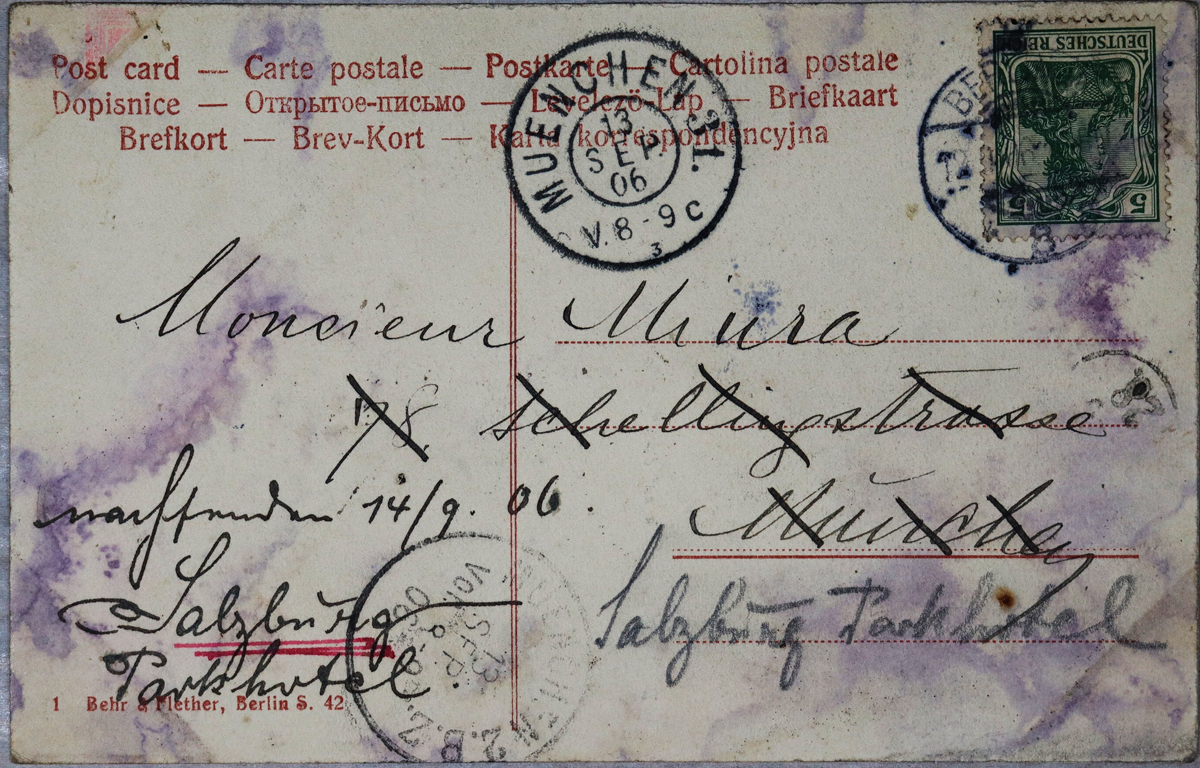 Post card — Carte postale — Postkarte — Cartolina postale
Dopisnice — Открытое-письмо — Levelező-Lap — Briefkaart
Brefkort — Brev-Kort — Karta korrespondencyjna
MUENCHEN 31.
13
SEP.
06
V. 8-9 C
3
DEUTSCHES REICH
5 5
BERLIN
8
Monsieur Miura
78 Schellingstrasse
München
nachsenden 14/9. 06.
Salzburg
Parkhotel
Salzburg Parkhotel
MUENCHEN 2. B.Z.
13. SEP.
VOR
1 Behr & Flether, Berlin S. 42